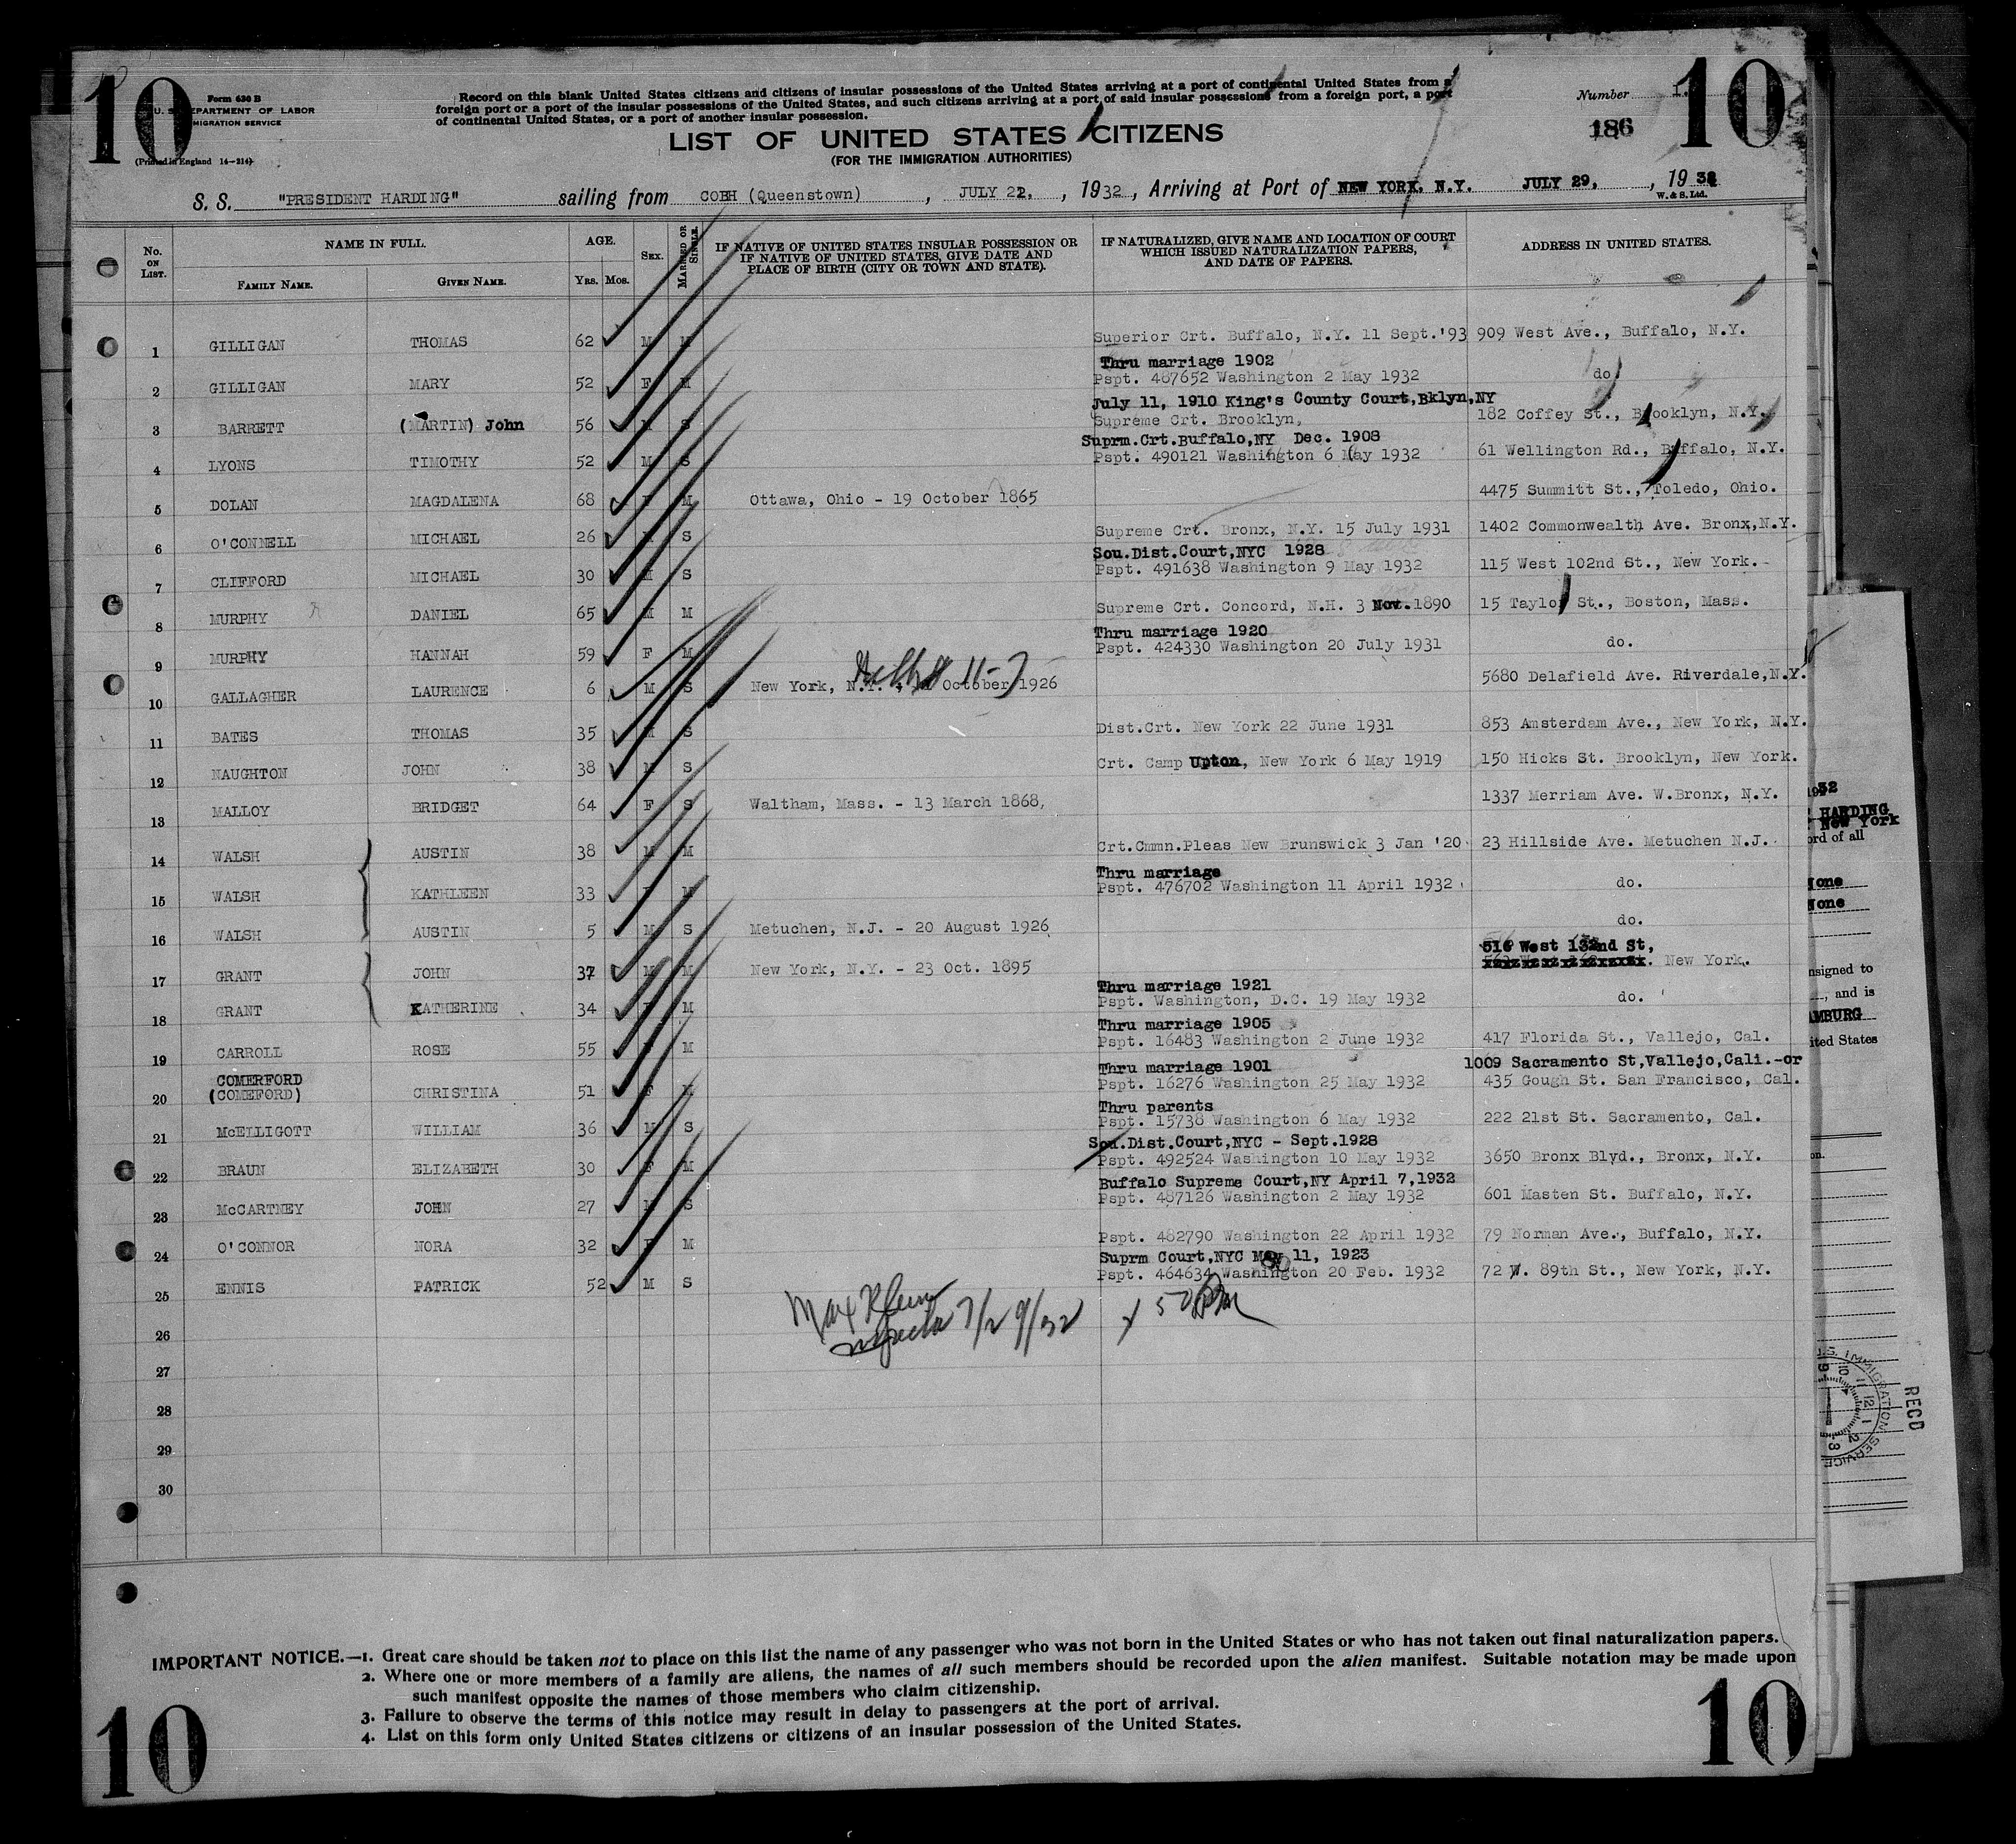 10
10
Form 630 B
U. S. DEPARTMENT OF LABOR
IMMIGRATION SERVICE
(Printed in England 14—214)
Record on this blank United States citizens and citizens of insular possessions of the United States arriving at a port of continental United States from a
foreign port or a port of the insular possessions of the United States, and such citizens arriving at a port of said insular possessions from a foreign port, a port
of continental United States, or a port of another insular possession.
Number
186
LIST OF UNITED STATES CITIZENS
(FOR THE IMMIGRATION AUTHORITIES)
S. S. "PRESIDENT HARDING" sailing from COBH (Queenstown), JULY 22, , 1932, Arriving at Port of NEW YORK, N.Y. JULY 29, , 1932
W. & S. Ltd.
No. ON LIST. NAME IN FULL. AGE. SEX. MARRIED OR SINGLE. IF NATIVE OF UNITED STATES INSULAR POSSESSION OR IF NATIVE OF UNITED STATES, GIVE DATE AND PLACE OF BIRTH (CITY OR TOWN AND STATE). IF NATURALIZED, GIVE NAME AND LOCATION OF COURT WHICH ISSUED NATURALIZATION PAPERS, AND DATE OF PAPERS. ADDRESS IN UNITED STATES.
FAMILY NAME. GIVEN NAME. YRS. MOS.
1 GILLIGAN THOMAS 62 M M Superior Crt. Buffalo, N.Y. 11 Sept.'93 909 West Ave., Buffalo, N.Y.
Thru marriage 1902
2 GILLIGAN MARY 52 F M Pspt. 487652 Washington 2 May 1932 do.
July 11, 1910 King's County Court,Bklyn,NY
3 BARRETT (MARTIN) John 56 M S Supreme Crt. Brooklyn, 182 Coffey St., Brooklyn, N.Y.
Suprm.Crt.Buffalo,NY Dec. 1908
4 LYONS TIMOTHY 52 M S Pspt. 490121 Washington 6 May 1932 61 Wellington Rd., Buffalo, N.Y.
5 DOLAN MAGDALENA 68 F M Ottawa, Ohio - 19 October 1865 4475 Summitt St., Toledo, Ohio.
6 O'CONNELL MICHAEL 26 M S Supreme Crt. Bronx, N.Y. 15 July 1931 1402 Commonwealth Ave. Bronx,N.Y.
Sou.Dist.Court,NYC 1928
7 CLIFFORD MICHAEL 30 M S Pspt. 491638 Washington 9 May 1932 115 West 102nd St., New York.
8 MURPHY DANIEL 65 M M Supreme Crt. Concord, N.H. 3 Nov. 1890 15 Taylor St., Boston, Mass.
Thru marriage 1920
9 MURPHY HANNAH 59 F M Pspt. 424330 Washington 20 July 1931 do.
10 GALLAGHER LAURENCE 6 M S New York, N.Y. October 1926 5680 Delafield Ave. Riverdale,N.Y.
11 BATES THOMAS 35 M S Dist.Crt. New York 22 June 1931 853 Amsterdam Ave., New York, N.Y.
12 NAUGHTON JOHN 38 M S Crt. Camp Upton, New York 6 May 1919 150 Hicks St. Brooklyn, New York.
13 MALLOY BRIDGET 64 F S Waltham, Mass. - 13 March 1868, 1337 Merriam Ave. W.Bronx, N.Y.
14 WALSH AUSTIN 38 M M Crt.Cmmn.Pleas New Brunswick 3 Jan '20 23 Hillside Ave. Metuchen N.J.
Thru marriage
15 WALSH KATHLEEN 33 F M Pspt. 476702 Washington 11 April 1932 do.
16 WALSH AUSTIN 5 M S Metuchen, N.J. - 20 August 1926 do.
516 West 132nd St,
17 GRANT JOHN 37 M M New York, N.Y. - 23 Oct. 1895 New York.
Thru marriage 1921
18 GRANT KATHERINE 34 F M Pspt. Washington, D.C. 19 May 1932 do.
Thru marriage 1905
19 CARROLL ROSE 55 F M Pspt. 16483 Washington 2 June 1932 417 Florida St., Vallejo, Cal.
COMERFORD Thru marriage 1901 1009 Sacramento St,Vallejo,Cali.-or
20 (COMEFORD) CHRISTINA 51 F M Pspt. 16276 Washington 25 May 1932 435 Gough St. San Francisco, Cal.
Thru parents
21 McELLIGOTT WILLIAM 36 M S Pspt. 15738 Washington 6 May 1932 222 21st St. Sacramento, Cal.
Sou.Dist.Court,NYC - Sept.1928
22 BRAUN ELIZABETH 30 F M Pspt. 492524 Washington 10 May 1932 3650 Bronx Blvd., Bronx, N.Y.
Buffalo Supreme Court,NY April 7,1932
23 McCARTNEY JOHN 27 M S Pspt. 487126 Washington 2 May 1932 601 Masten St. Buffalo, N.Y.
24 O'CONNOR NORA 32 F M Pspt. 482790 Washington 22 April 1932 79 Norman Ave., Buffalo, N.Y.
Suprm Court,NYC May 11, 1923
25 ENNIS PATRICK 52 M S Pspt. 464634 Washington 20 Feb. 1932 72 W. 89th St., New York, N.Y.
Max Klein
Inspector 7/29/32
26
27
28
29
30
1932
HARDING
New York
ord of all
None
None
nsigned to
, and is
AMBURG
ited States
U.S. IMMIGRATION SERVICE
RECD
IMPORTANT NOTICE.—1. Great care should be taken not to place on this list the name of any passenger who was not born in the United States or who has not taken out final naturalization papers.
2. Where one or more members of a family are aliens, the names of all such members should be recorded upon the alien manifest. Suitable notation may be made upon
such manifest opposite the names of those members who claim citizenship.
3. Failure to observe the terms of this notice may result in delay to passengers at the port of arrival.
4. List on this form only United States citizens or citizens of an insular possession of the United States.
10
10